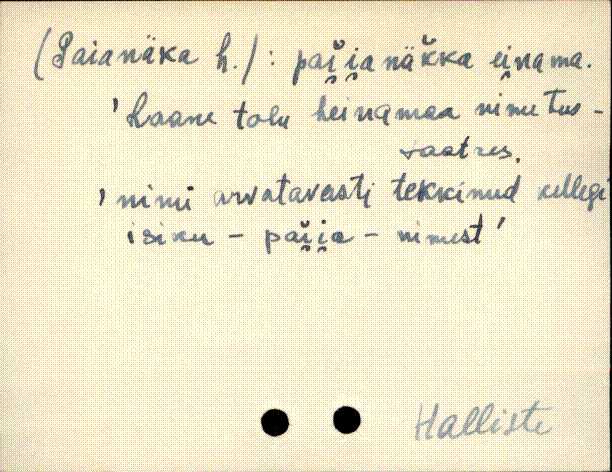 (Paianäka h.): paĭ̯i̯anäk̆ka ei̯nama.
'Laane talu heinamaa nimetus-
saatres.
'nimi arvatavasti tekkinud kellegi
isiku - paĭ̯i̯a - nimest'
Halliste